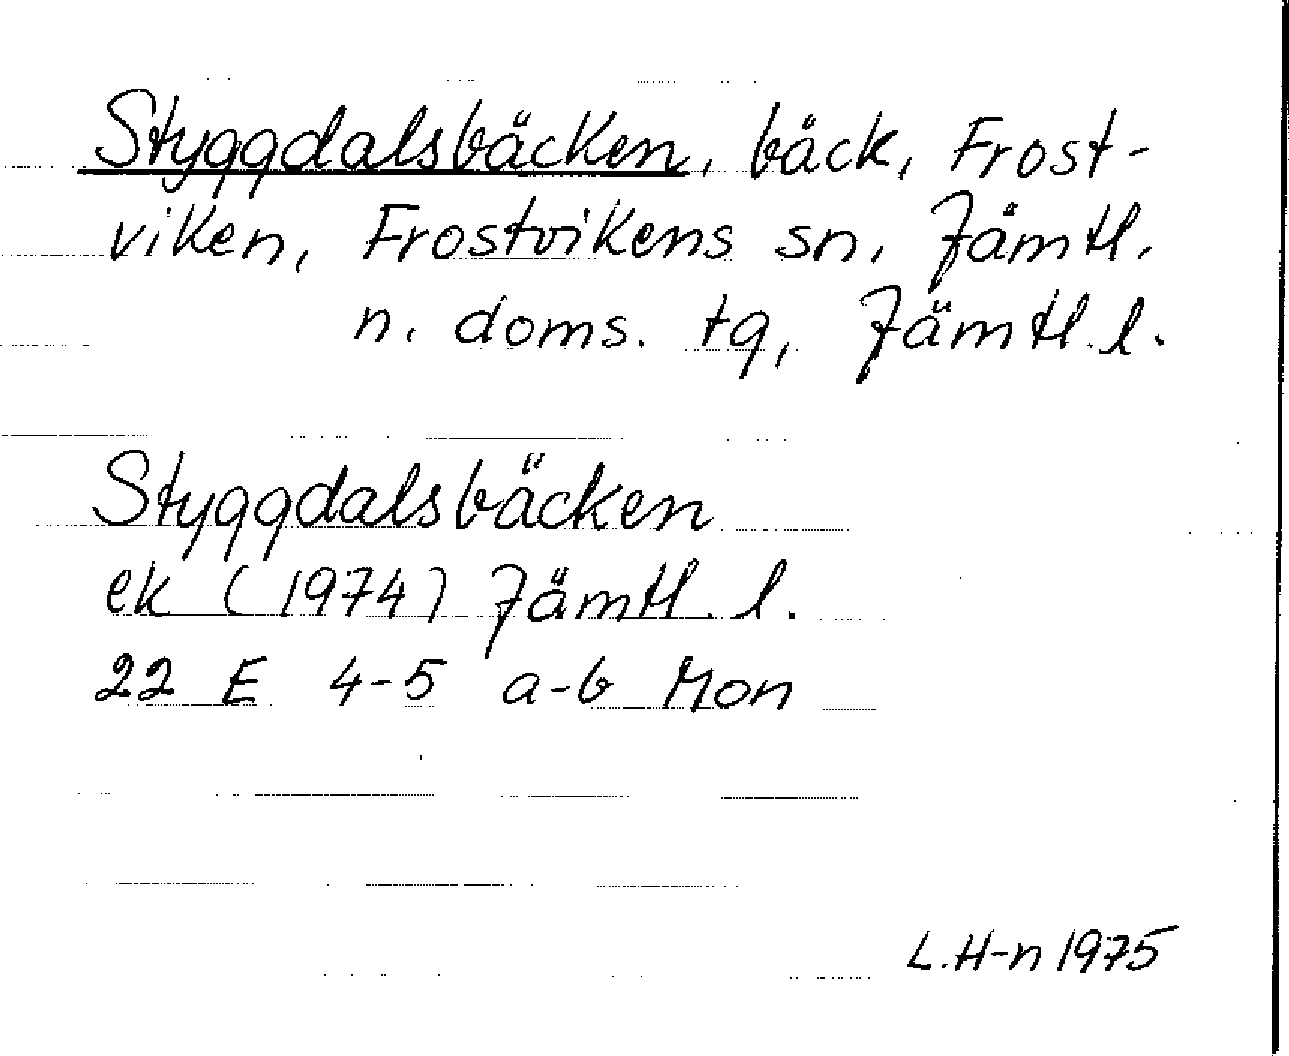 Styggdalsbäcken, bäck, Frost-
viken, Frostvikens sn, Jämtl.
n. doms. tg, Jämtl. l.
Styggdalsbäcken
ek (1974) Jämtl. l.
22 E 4-5 a-b Mon
L.H-n 1975